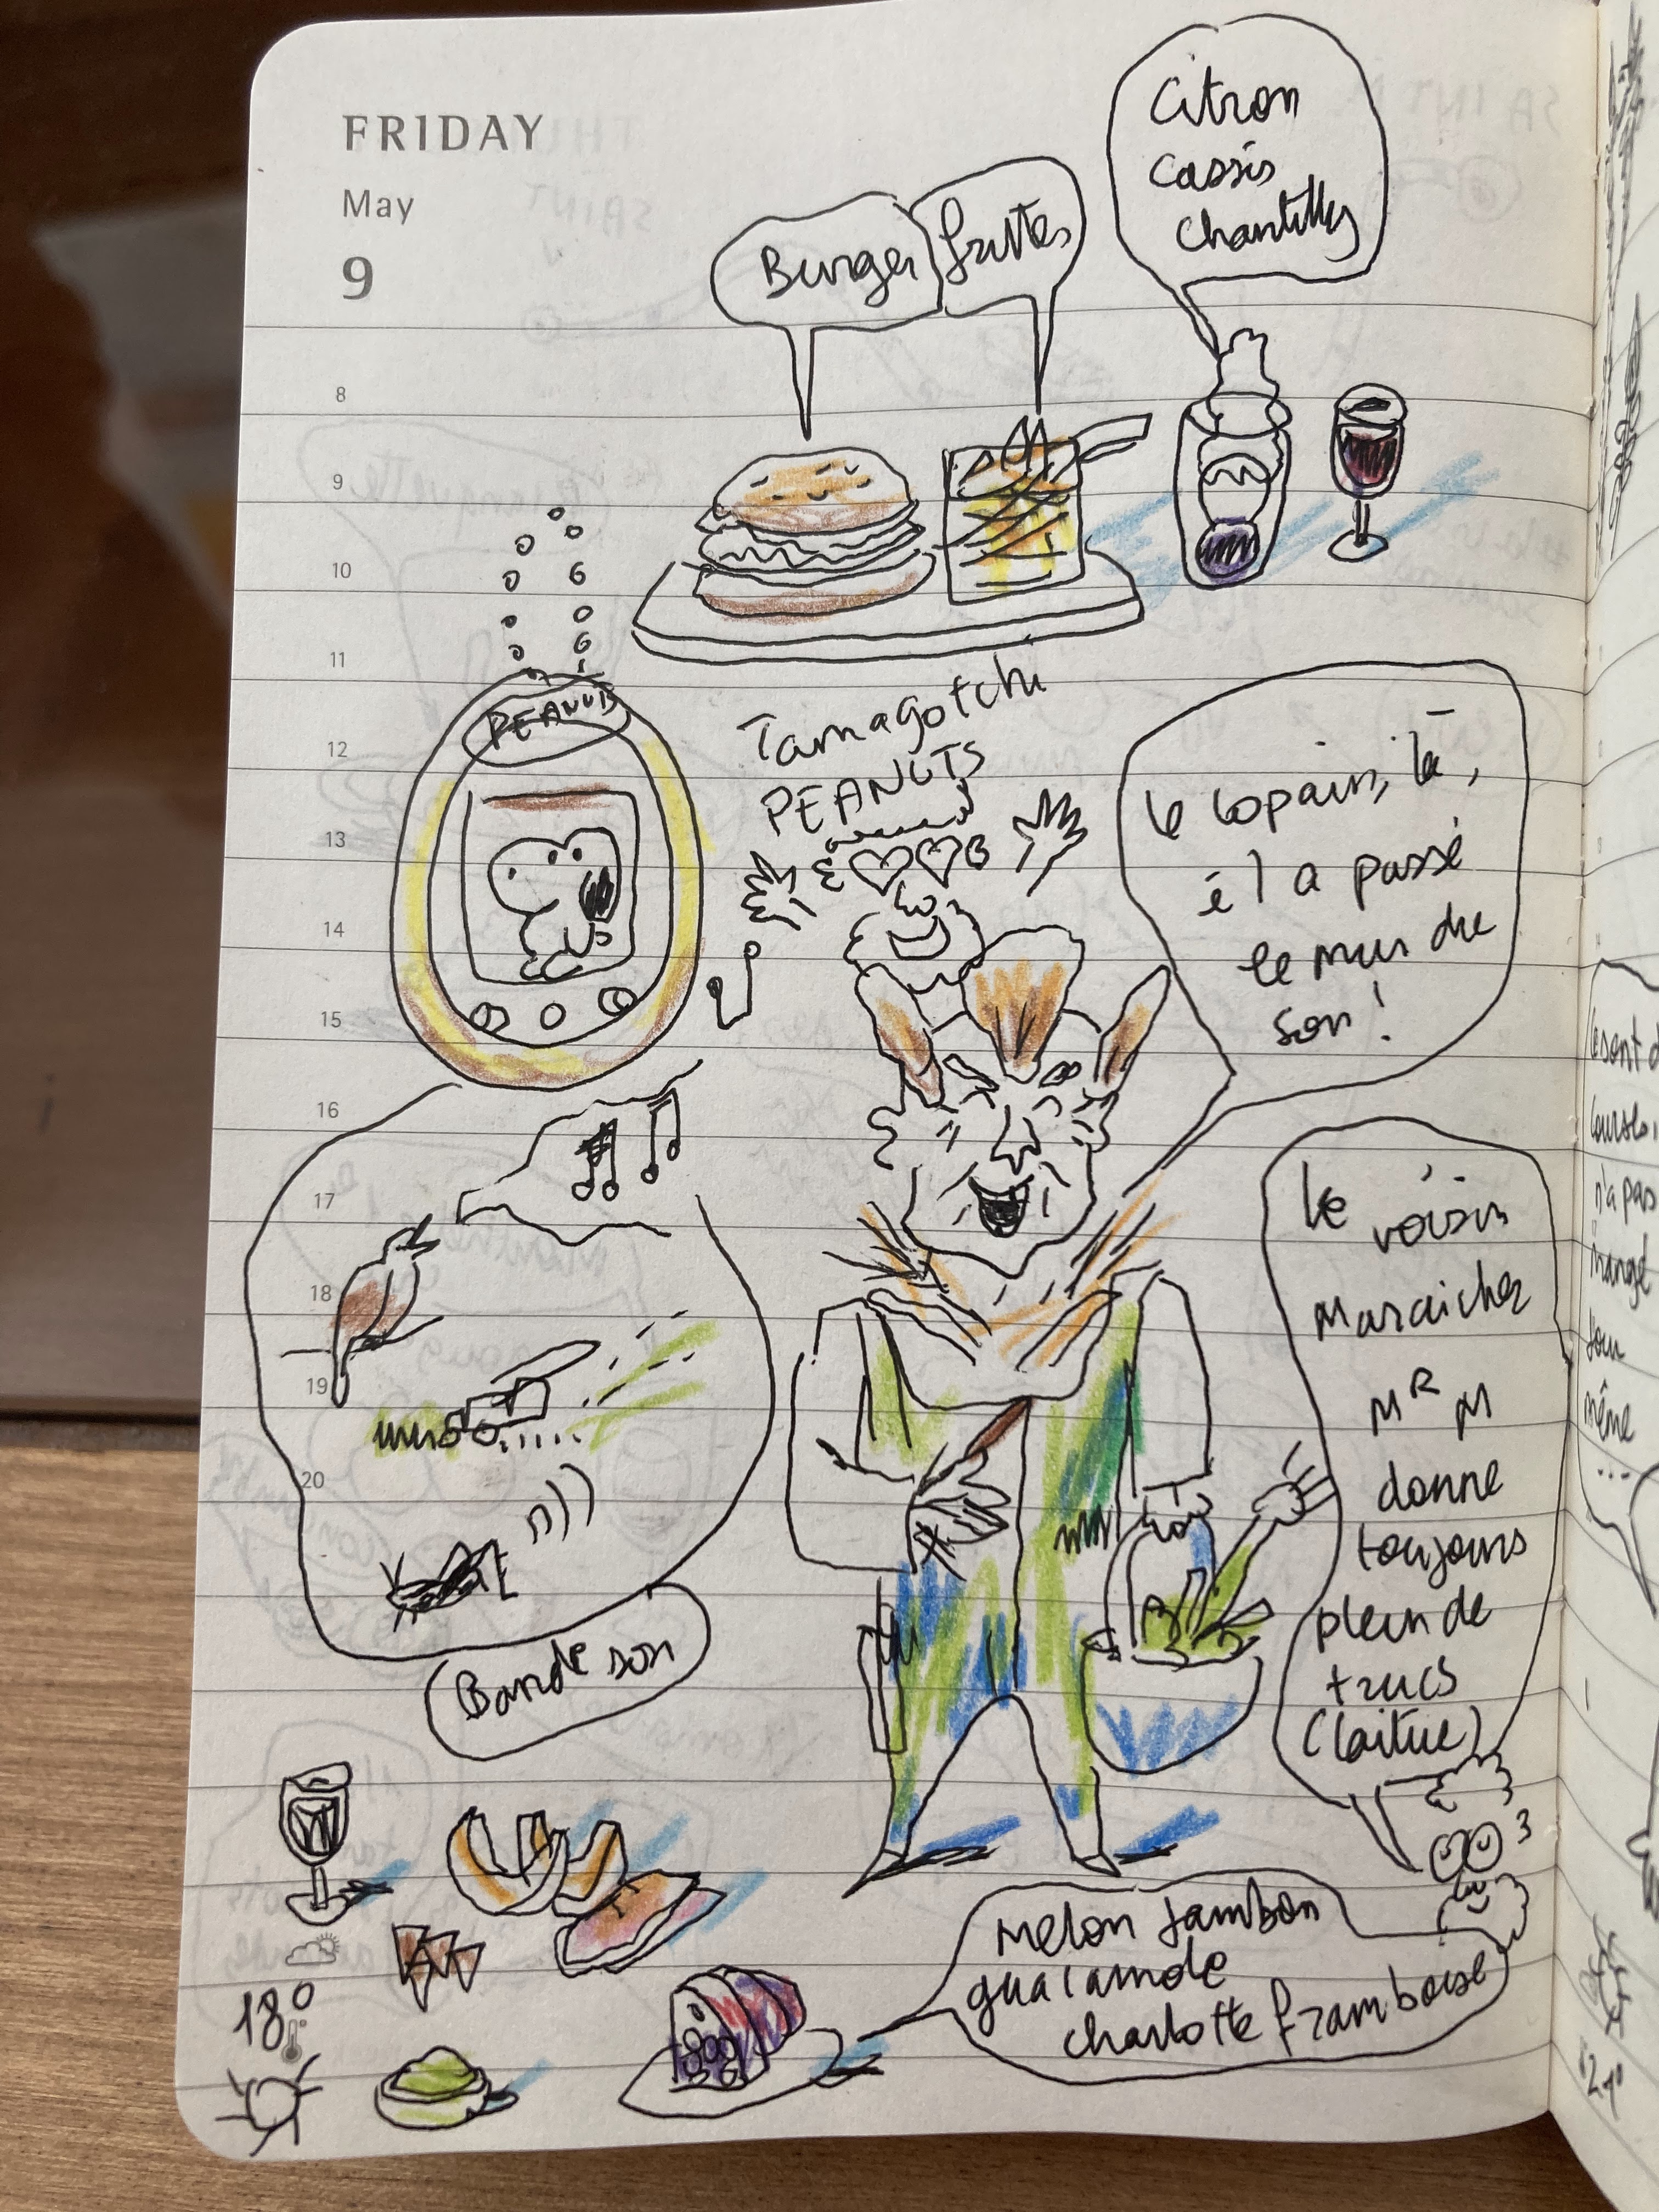 FRIDAY
May
9
Citron
Cassis
Chantilly
Burger
frites
8
9
10
11
12
13
14
15
16
17
18
19
20
PEANUTS
Tamagotchi
PEANUTS
le copain, là,
il a passé
le mur du
son !
Bande son
le voisin
Maraicher
MR M
donne
toujours
plein de
trucs
(laitue)
Melon Jambon
guacamole
charlotte framboise
18°
n'a pas
mangé
son
même
...